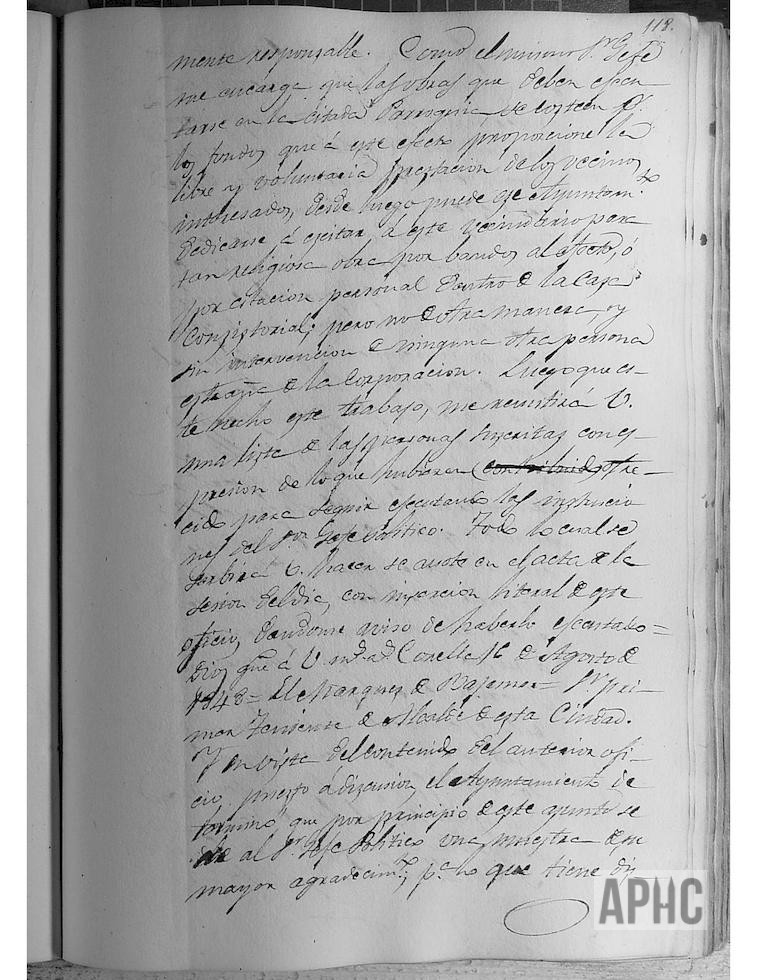 118.
mente responsable. Como el mismo Sr. Gefe
me encarga que las obras que deben efec-
tarse en la citada Parroquia se costeen de
los fondos que á este efecto proporcione la
libre y voluntaria prestacion de los vecinos
interesados, desde luego puede ese Ayuntamto.
dedicarse á escitar a este vecindario para
tan religiosa obra por bandos al efecto, ó
por citacion personal dentro de la Casa
Consistorial; pero no de otra manera, y
sin intervencion de ninguna otra persona
estraña de la Corporacion. Luego que es-
te hecho este trabajo, me remitirá V.
una lista de las personas suscritas con es-
presion de lo que hubieren contribuido ofre-
cido para seguir ejecutando las instruccio
nes del Sor. Gefe Politico. Todo lo cual se
serbirá V. hacer se anote en el acta de la
sesion del dia, con insercion literal de este
oficio, dandome aviso de haberlo ejecutado =
Dios gue. á V. ms. as. Corella 16 de Agosto de
1848 = El Marques de Bajamar = Sr. Pri-
mer Teniente de Alcalde de esta Ciudad.
Y en vista del contenido del anterior ofi-
cio, puesto á discusion, el Ayuntamiento de
termino que por principio de este asunto se
dé al Sr. Gefe Politico una muestra de su
mayor agradecimto., pr. lo que tiene dis
APHC